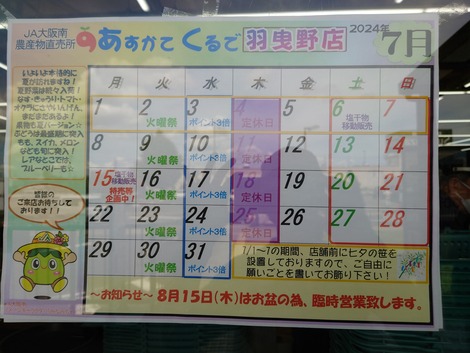 JA大阪南
農産物直売所
あすかてくるで 羽曳野店
2024年
7月
いよいよ本格的に
夏が訪れますね!
夏野菜は続々入荷!
なす・きゅうり・トマト・
オクラにさやいんげん、
まだまだあるよ!
果物も夏バージョン☆
ぶどうは最盛期に突入!
もも、スイカ、メロン
なども旬に突入!
レアなどこでは、
ブルーベリーも☆
皆様の
ご来店お待ちして
おります!!
月 火 水 木 金 土 日
1 2 3 4 5 6 7
火曜祭 ポイント3倍 定休日 塩干物
移動販売
8 9 10 11 12 13 14
火曜祭 ポイント3倍 定休日
15 16 17 18 19 20 21
塩干物
移動販売
特売市
企画中!
火曜祭 ポイント3倍 定休日
22 23 24 25 26 27 28
火曜祭 ポイント3倍 定休日
29 30 31
火曜祭 ポイント3倍
7/1~7の期間、店舗前に七夕の笹を
設置しておりますので、ご自由に
願いごとを書いてお飾り下さい!
~お知らせ~ 8月15日(木)はお盆の為、臨時営業致します。